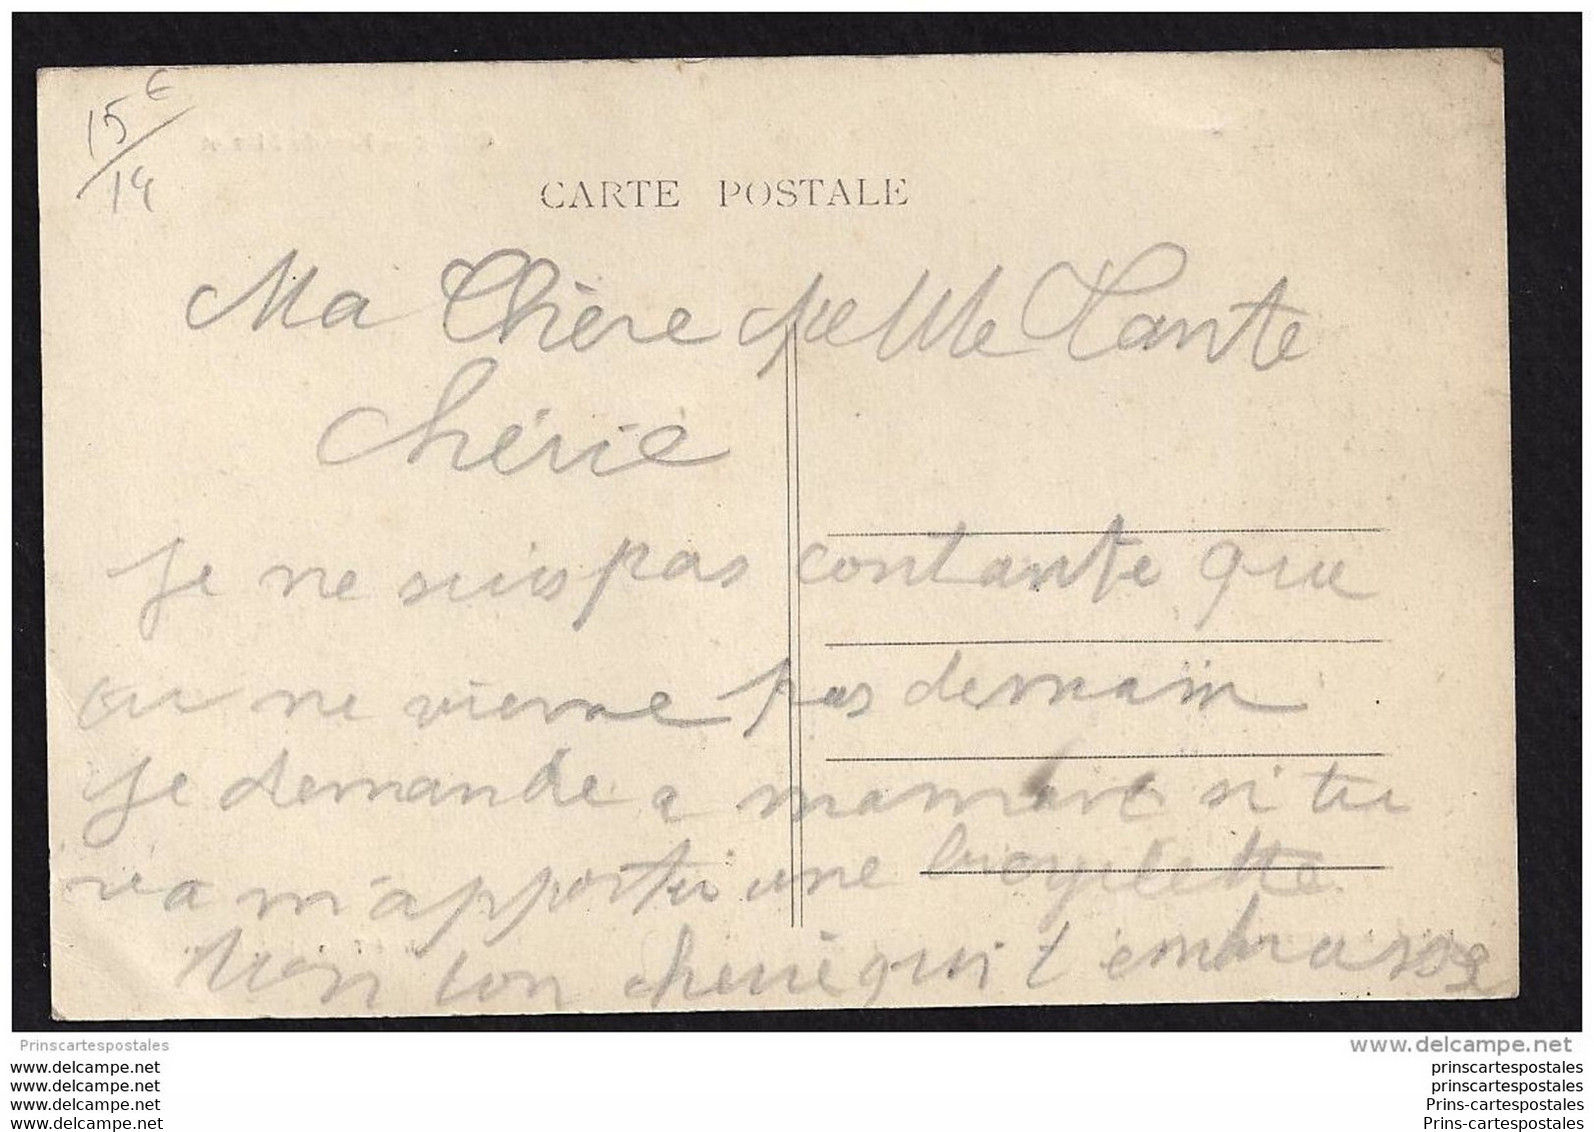 15 €
14
CARTE POSTALE
Ma Chère petite Tante
Chérie
je ne suis pas contante que
tu ne vienne pas demain
je demande a si tu
va m'apporter une bicyclette
ton cherie qui t'embrasse
Prinscartespostales
www.delcampe.net
www.delcampe.net
www.delcampe.net
www.delcampe.net
www.delcampe.net
prinscartespostales
prinscartespostales
Prins-cartespostales
Prins-cartespostales